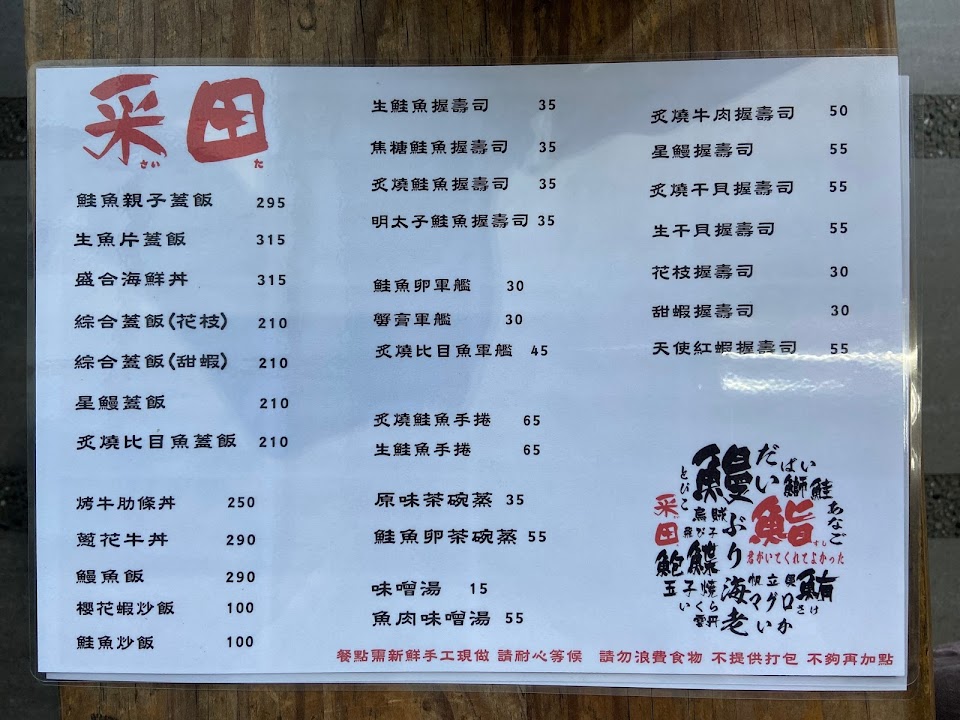 采田
さい た
鮭魚親子蓋飯 295
生魚片蓋飯 315
盛合海鮮丼 315
綜合蓋飯(花枝) 210
綜合蓋飯(甜蝦) 210
星鰻蓋飯 210
炙燒比目魚蓋飯 210
烤牛肋條丼 250
蔥花牛丼 290
鰻魚飯 290
櫻花蝦炒飯 100
鮭魚炒飯 100
生鮭魚握壽司 35
焦糖鮭魚握壽司 35
炙燒鮭魚握壽司 35
明太子鮭魚握壽司 35
鮭魚卵軍艦 30
蟹膏軍艦 30
炙燒比目魚軍艦 45
炙燒鮭魚手捲 65
生鮭魚手捲 65
原味茶碗蒸 35
鮭魚卵茶碗蒸 55
味噌湯 15
魚肉味噌湯 55
炙燒牛肉握壽司 50
星鰻握壽司 55
炙燒干貝握壽司 55
生干貝握壽司 55
花枝握壽司 30
甜蝦握壽司 30
天使紅蝦握壽司 55
とびこ
鰻
だい
ばい
鰤鮭
あなご
采田
烏賊
飛び子
ぶり
鮨
すし
君がいてくれてよかった
鮑
玉子焼
いくら
雲丹
海老
帆立
マグロ
いか
鮪
さけ
餐點需新鮮手工現做 請耐心等候 請勿浪費食物 不提供打包 不夠再加點